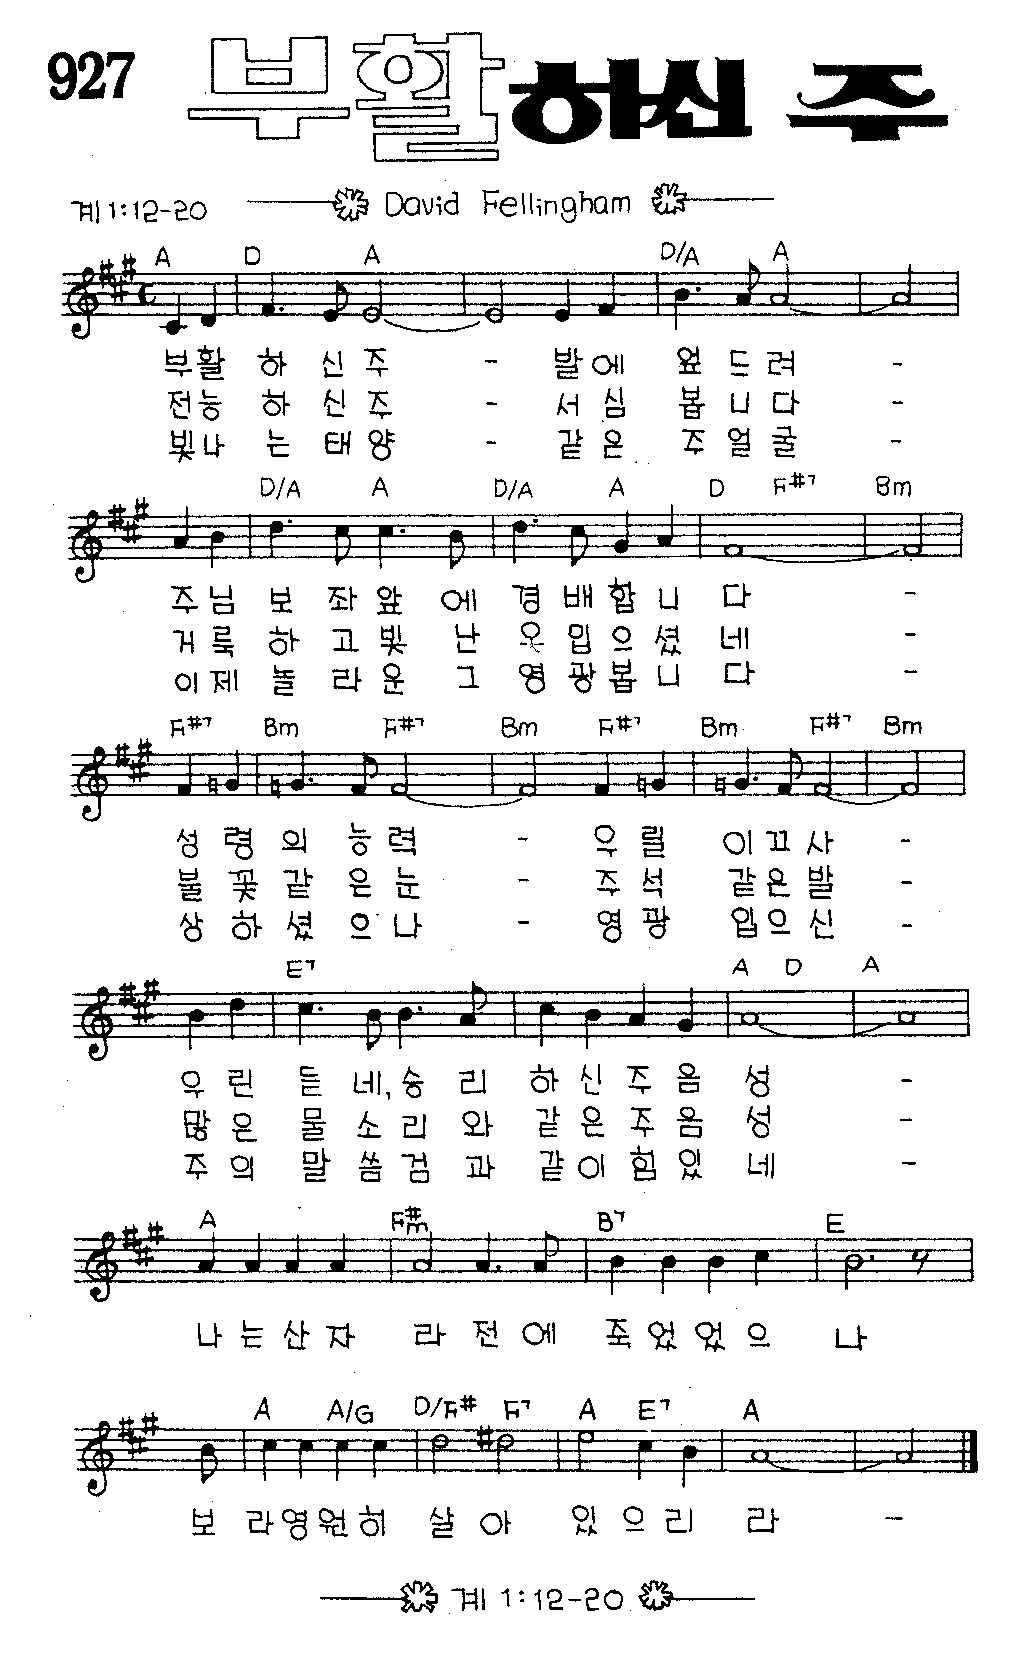 927 부활하신 주
계 1:12-20 David Fellingham
A D A D/A A
부활 하 신 주 - 발에 엎 드 려 -
전능 하 신 주 - 서 심 봅 니 다 -
빛나 는 태 양 - 같 은 주 얼 굴 -
D/A A D/A A D F#7 Bm
주 님 보 좌 앞 에 경 배합 니 다 -
거 룩 하 고 빛 난 옷 입으 셨 네 -
이 제 놀 라운 그 영 광봅 니 다 -
F#7 Bm F#7 Bm F#7 Bm F#7 Bm
성 령 의 능 력 - 우 릴 이 끄 사 -
불 꽃 같 은 눈 - 주 석 같 은 발 -
상 하 셨 으 나 - 영 광 입으 신 -
E7 A D A
우 린 듣 네, 승 리 하 신 주 음 성 -
많 은 물 소 리 와 같 은 주 음 성 -
주 의 말 씀 검 과 같 이 힘 있 네 -
A F#m B7 E
나 는 산 자 라 전 에 죽 었 었 으 나
A A/G D/F# F7 A E7 A
보 라영원히 살 아 있 으 리 라 -
계 1:12-20